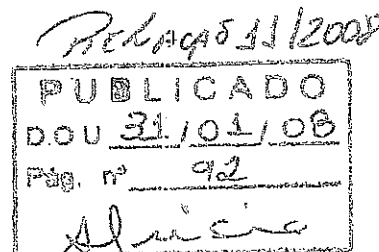 11/2008
PUBLICADO
D.O.U 31/01/08
Pág. nº 92